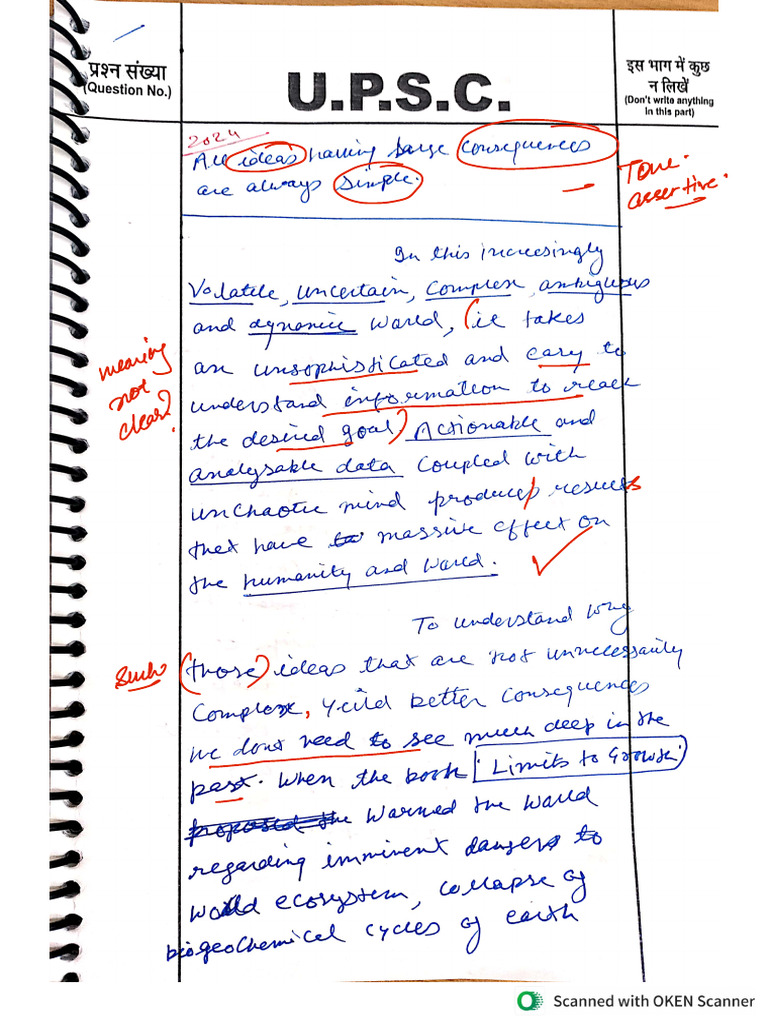 प्रश्न संख्या
(Question No.)
U.P.S.C.
इस भाग में कुछ
न लिखें
(Don't write anything
in this part)
2024
All ideas having large consequences
are always simple.
Tone.
assertive.
In this increasingly
Volatile, uncertain, complex, ambiguous
and dynamic world, (it takes
an unsophisticated and easy to
understand information to reach
the desired goal) Actionable and
meaning
not
clear?
analysable data coupled with
unchaotic mind produces results
that have to massive effect on
the humanity and world.
To understand why
Such (those) ideas that are not unnecessarily
complex, yeild better consequences
we dont need to see much deep in the
past. When the book 'Limits to Growth'
proposed the warned the world
regarding imminent dangers to
world ecosystem, collapse of
biogeochemical cycles of earth
Scanned with OKEN Scanner